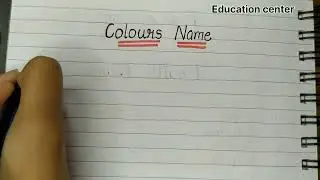 Education center
Colours Name